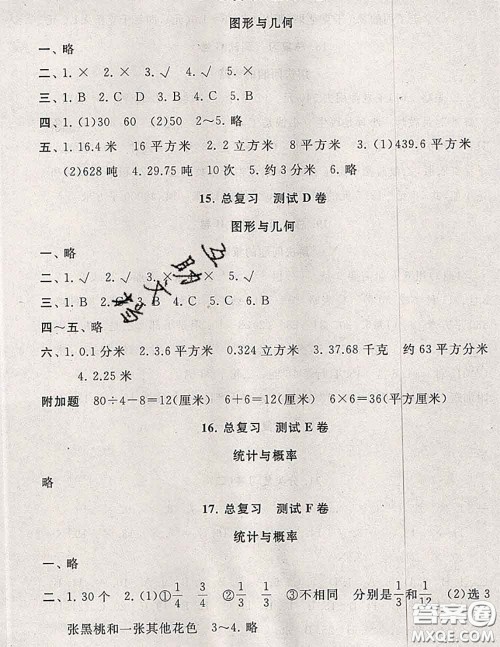 图形与几何
一、略
二、1.× 2.× 3.√ 4.√ 5.×
三、1.B 2.C D 3.B 4.C 5.B
四、1.(1)30 60 (2)50 2～5.略
五、1.16.4米 16平方米 2.2立方米 8平方米 3.(1)439.6平方米
(2)628吨 4.29.75吨 10次 5.约3分米 6.略
15. 总复习 测试D卷
图形与几何
一、略
二、1.√ 2.√ 3.× 4.× 5.√
三、1.B 3.B 4.C 5.C 6.B
四～五、略
六、1.0.1分米 2.3.6平方米 0.324立方米 3.37.68千克 约63平方分米
4.2.25米
附加题 80÷4－8＝12(厘米) 6＋6＝12(厘米) 6×6＝36(平方厘米)
16. 总复习 测试E卷
统计与概率
略
17. 总复习 测试F卷
统计与概率
一、略
二、1.30个 2.(1)①1/4 3/4 ②1/2 1/2 ③不相同 分别是1/3和1/12 (2)选3
张黑桃和一张其他花色 3～4.略
答案圈
MXQE.COM